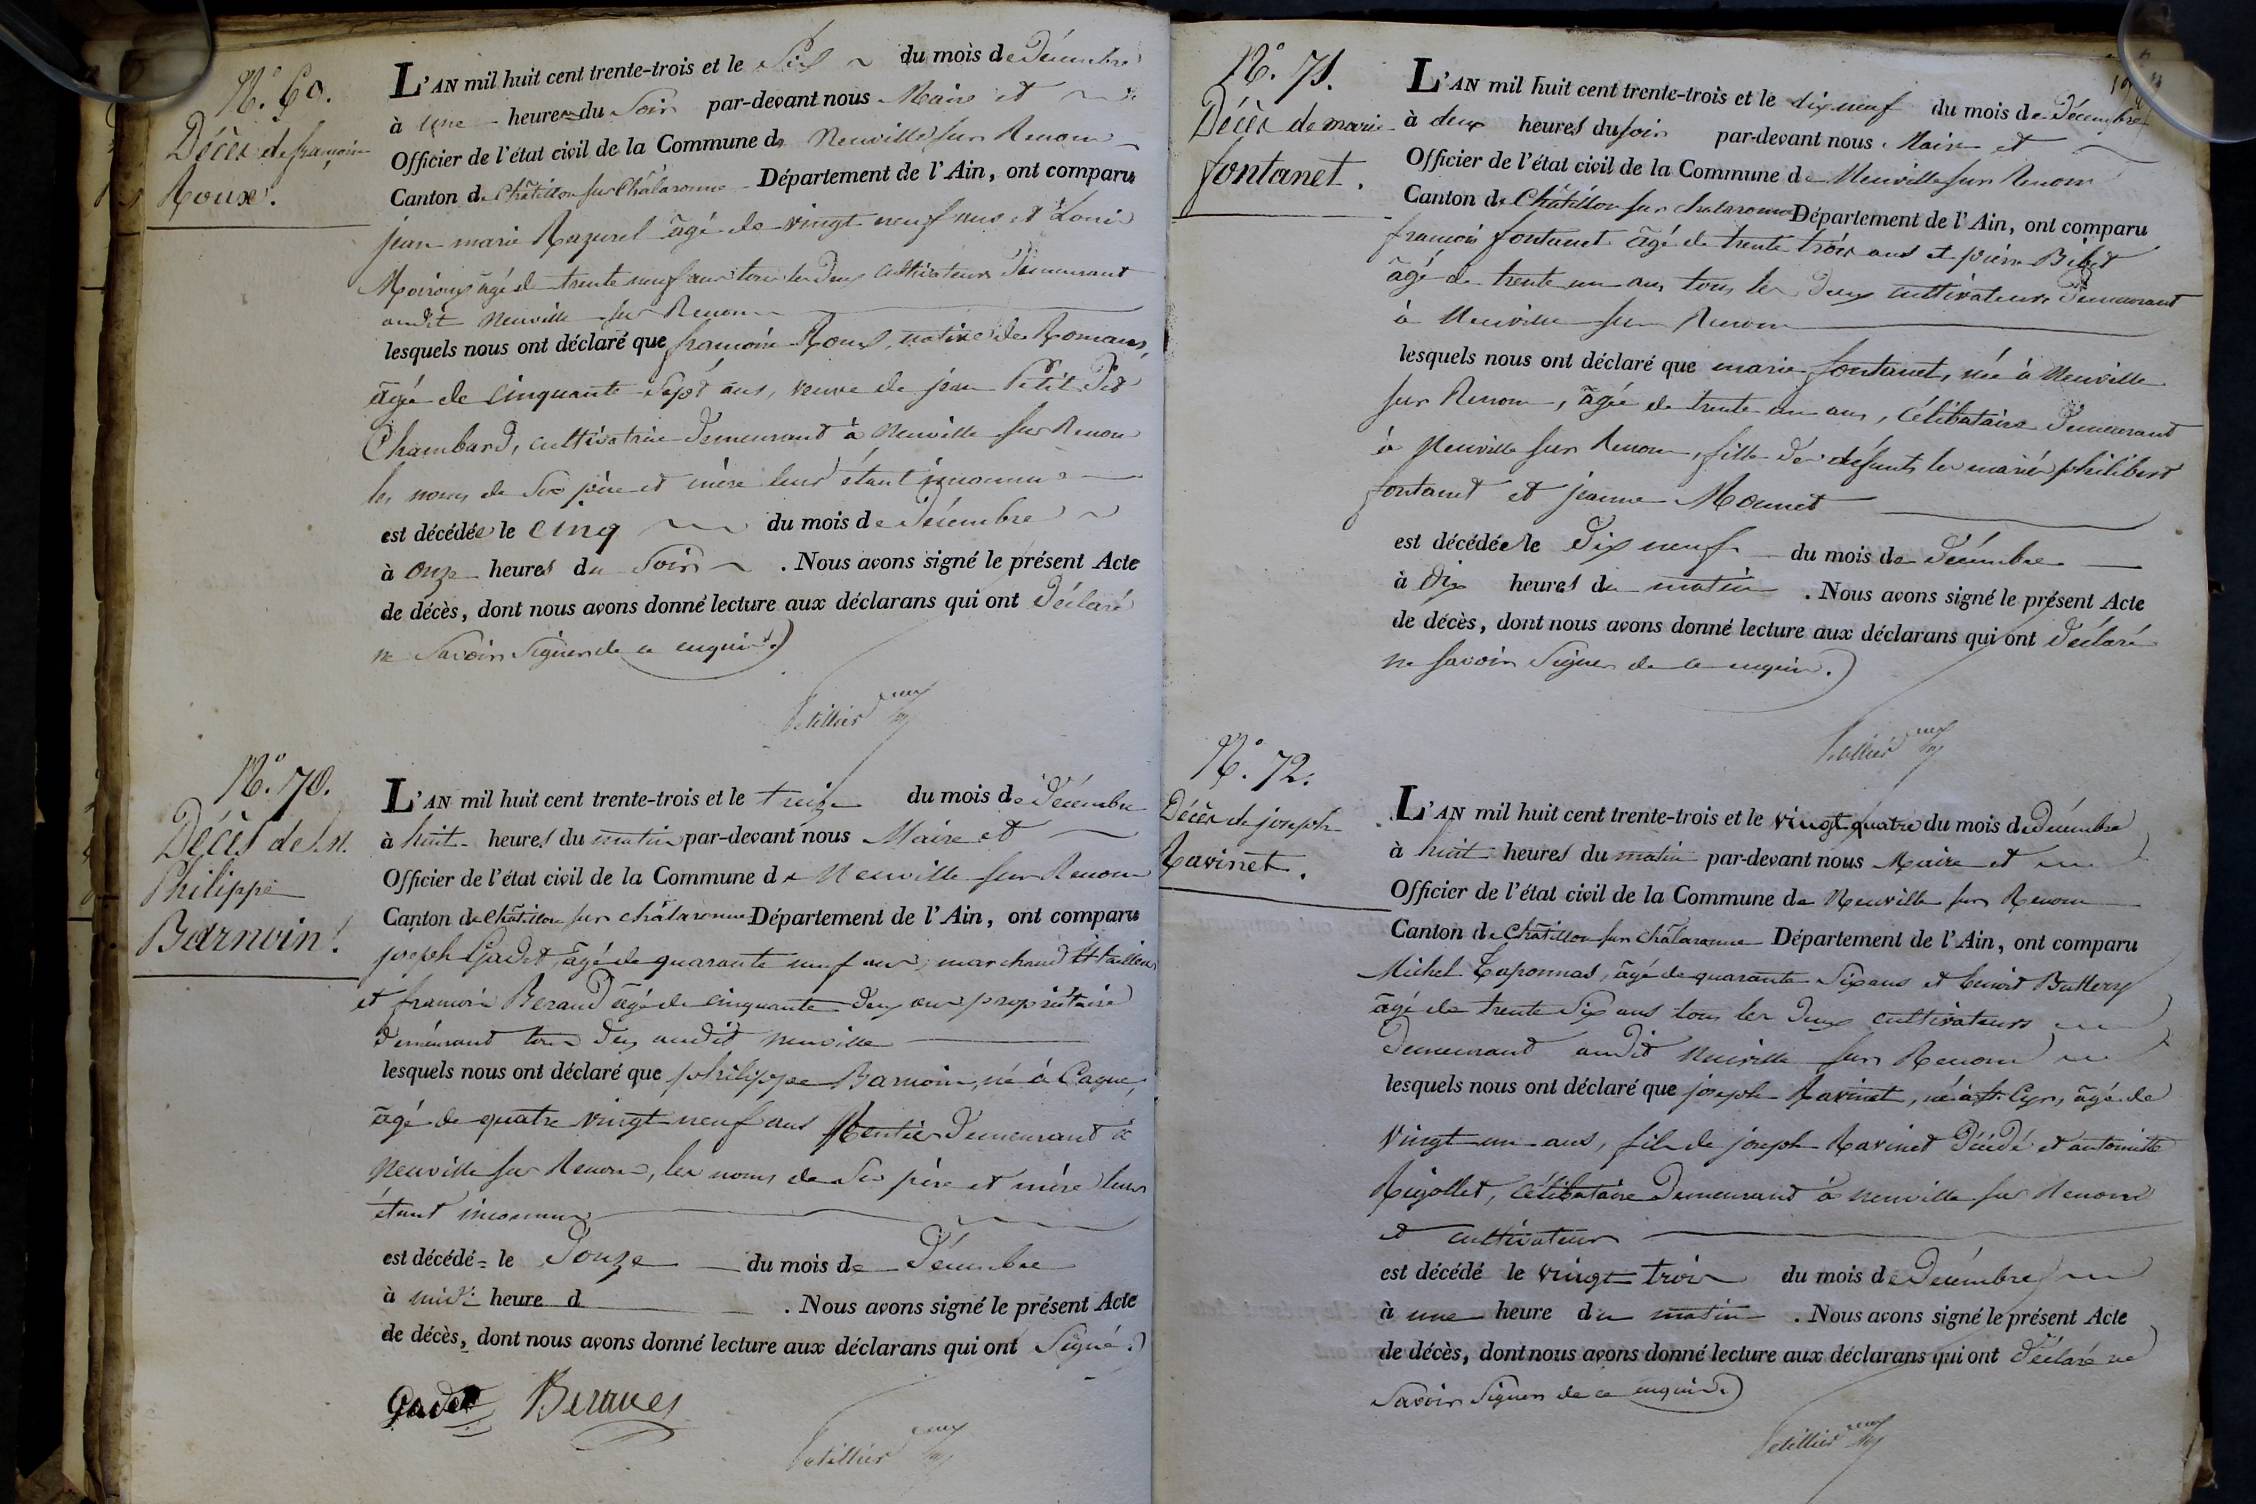 N.° 69.
Décès de françoise
Roux.
L'AN mil huit cent trente-trois et le Six du mois de Décembre
à une heure du Soir par-devant nous Maire et
Officier de l'état civil de la Commune de Neuville sur Renom
Canton de Châtillon sur Chalaronne Département de l'Ain, ont comparu
jean marie Razurel âgé de vingt neuf ans et Louis
Moiroux âgé de trente neuf ans tous les deux cultivateurs Demeurant
audit Neuville sur Renom
lesquels nous ont déclaré que françoise Roux, native de Romans,
âgé de cinquante sept ans, veuve de jean Petit Dit
Chambard, cultivatrice Demeurant à Neuville sur Renom
les noms de ses père et mère leur étant inconnus
est décédée le cinq du mois de Décembre
à onze heures du Soir . Nous avons signé le présent Acte
de décès, dont nous avons donné lecture aux déclarans qui ont Déclaré
ne Savoir Signer de ce enquis.
Petillier
N.° 70.
Décès de S.r
Philippe
Barnoin.
L'AN mil huit cent trente-trois et le treize du mois de Décembre
à huit heures du matin par-devant nous Maire et
Officier de l'état civil de la Commune de Neuville sur Renom
Canton de Châtillon sur chalaronne Département de l'Ain, ont comparu
joseph Gadet, âgé de quarante neuf ans, marchand tailleur
et françois Beraud âgé de cinquante Deux ans propriétaire
demeurant tous Deux audit Neuville
lesquels nous ont déclaré que philippe Barnoin, né à Cagne,
âgé de quatre vingt neuf ans Rentier Demeurant à
Neuville sur Renom, les noms de Ses père et mère leur
étant inconnus
est décédé le Douze du mois de Décembre
à midi heure d . Nous avons signé le présent Acte
de décès, dont nous avons donné lecture aux déclarans qui ont Signé.
Gadet Beraud
Petillier
N.° 71.
Décès de marie
fontanet.
L'AN mil huit cent trente-trois et le dix neuf du mois de Décembre
à deux heures du soir par-devant nous Maire et
Officier de l'état civil de la Commune de Neuville sur Renom
Canton de Châtillon sur chalaronne Département de l'Ain, ont comparu
francois fontanet âgé de trente trois ans et pierre Bibet
âgé de trente un ans tous les Deux cultivateurs Demeurant
à Neuville sur Renom
lesquels nous ont déclaré que marie fontanet, née à Neuville
sur Renom, âgée de trente un ans, célibataire Demeurant
à Neuville sur Renom, fille de défunts les mariés philibert
fontanet et jeanne Monnet
est décédée le Dix neuf du mois de Décembre
à Dix heures du matin . Nous avons signé le présent Acte
de décès, dont nous avons donné lecture aux déclarans qui ont Déclaré
ne savoir Signer de ce enquis.
Petillier
N.° 72.
Décès de joseph
Ravinet.
L'AN mil huit cent trente-trois et le vingt quatre du mois de Décembre
à huit heures du matin par-devant nous Maire et
Officier de l'état civil de la Commune de Neuville sur Renom
Canton de Châtillon sur Chalaronne Département de l'Ain, ont comparu
Michel Taponnas, âgé de quarante Six ans et benoit Buttery
âgé de trente Six ans tous les Deux cultivateurs
Demeurant audit Neuville sur Renom
lesquels nous ont déclaré que joseph Ravinet, né à St. Cyr, âgé de
Vingt un ans, fils de joseph Ravinet Décédé et antoinette
Rigollet, célibataire Demeurant à Neuville sur Renom
et cultivateur
est décédé le vingt trois du mois de Décembre
à une heure du matin . Nous avons signé le présent Acte
de décès, dont nous avons donné lecture aux déclarans qui ont Déclaré ne
Savoir Signer de ce enquis.
Petillier